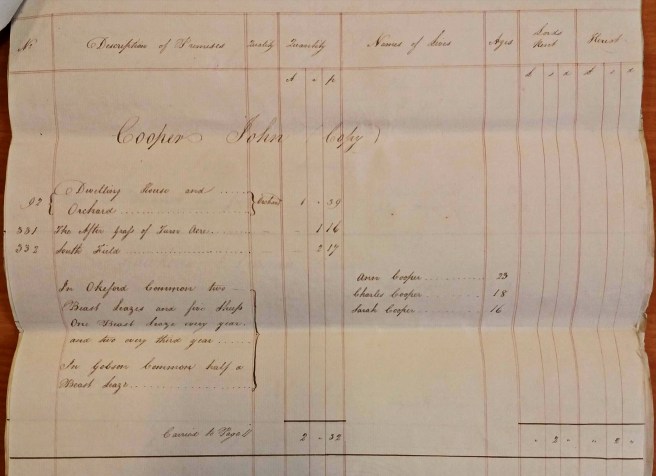 No Description of Premises Quality Quantity Names of Lives Ages Lords Rent Heriot
A " p £ s d £ s d
Cooper John Copy
92 Dwelling House and Orchard 1 " 39
Orchard
331 The After Grass of Acre 1 16
332 South Field 2 17
Ann Cooper 23
In Okeford Common two Charles Cooper 18
Beast Leazes and five Sheep Sarah Cooper 16
One Beast Leaze every year
and two every third year
In Common half a
Beast Leaze
Carried to Page 2 " 32 " 2 " " 2 "